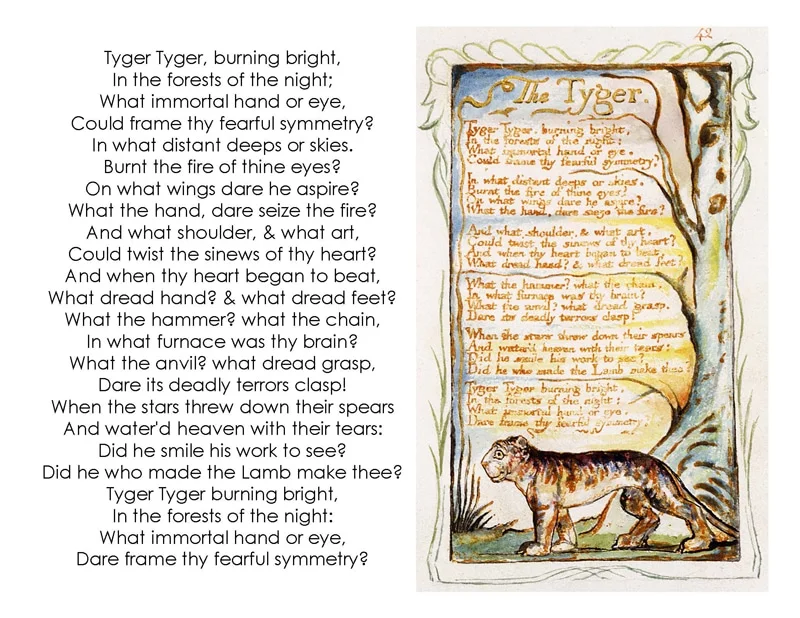 Tyger Tyger, burning bright,
In the forests of the night;
What immortal hand or eye,
Could frame thy fearful symmetry?
In what distant deeps or skies.
Burnt the fire of thine eyes?
On what wings dare he aspire?
What the hand, dare seize the fire?
And what shoulder, & what art,
Could twist the sinews of thy heart?
And when thy heart began to beat,
What dread hand? & what dread feet?
What the hammer? what the chain,
In what furnace was thy brain?
What the anvil? what dread grasp,
Dare its deadly terrors clasp!
When the stars threw down their spears
And water'd heaven with their tears:
Did he smile his work to see?
Did he who made the Lamb make thee?
Tyger Tyger burning bright,
In the forests of the night:
What immortal hand or eye,
Dare frame thy fearful symmetry?
42
The Tyger.
Tyger Tyger. burning bright,
In the forests of the night:
What immortal hand or eye.
Could frame thy fearful symmetry?
In what distant deeps or skies.
Burnt the fire of thine eyes?
On what wings dare he aspire?
What the hand, dare sieze the fire?
And what shoulder, & what art,
Could twist the sinews of thy heart?
And when thy heart began to beat,
What dread hand? & what dread feet?
What the hammer? what the chain,
In what furnace was thy brain?
What the anvil? what dread grasp,
Dare its deadly terrors clasp!
When the stars threw down their spears
And water'd heaven with their tears:
Did he smile his work to see?
Did he who made the Lamb make thee?
Tyger Tyger burning bright,
In the forests of the night:
What immortal hand or eye,
Dare frame thy fearful symmetry?